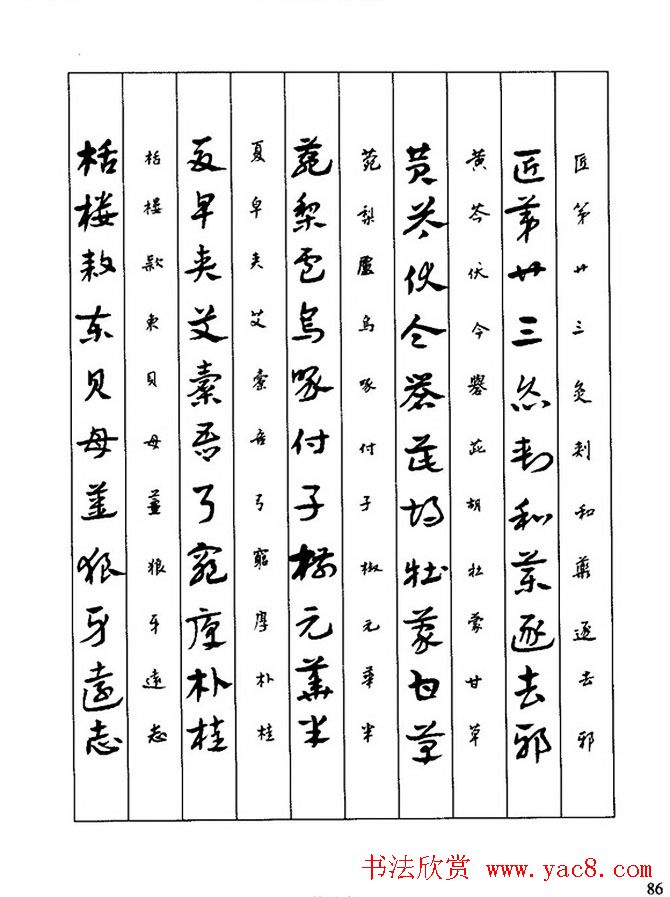 匠第廿三灸刺和藥逐去邪
匠第廿三灸刺和藥逐去邪
黄芩伏令礜茈胡牡蒙甘草
黄芩伏令礜茈胡牡蒙甘草
菀梨盧烏喙付子椒元華半
菀梨盧烏喙付子椒元華半
夏皁夹艾橐吾弓窮厚朴桂
夏皁夹艾橐吾弓窮厚朴桂
栝楼款東貝母薑狼牙遠志
栝楼款東貝母薑狼牙遠志
书法欣赏 www.yac8.com
86